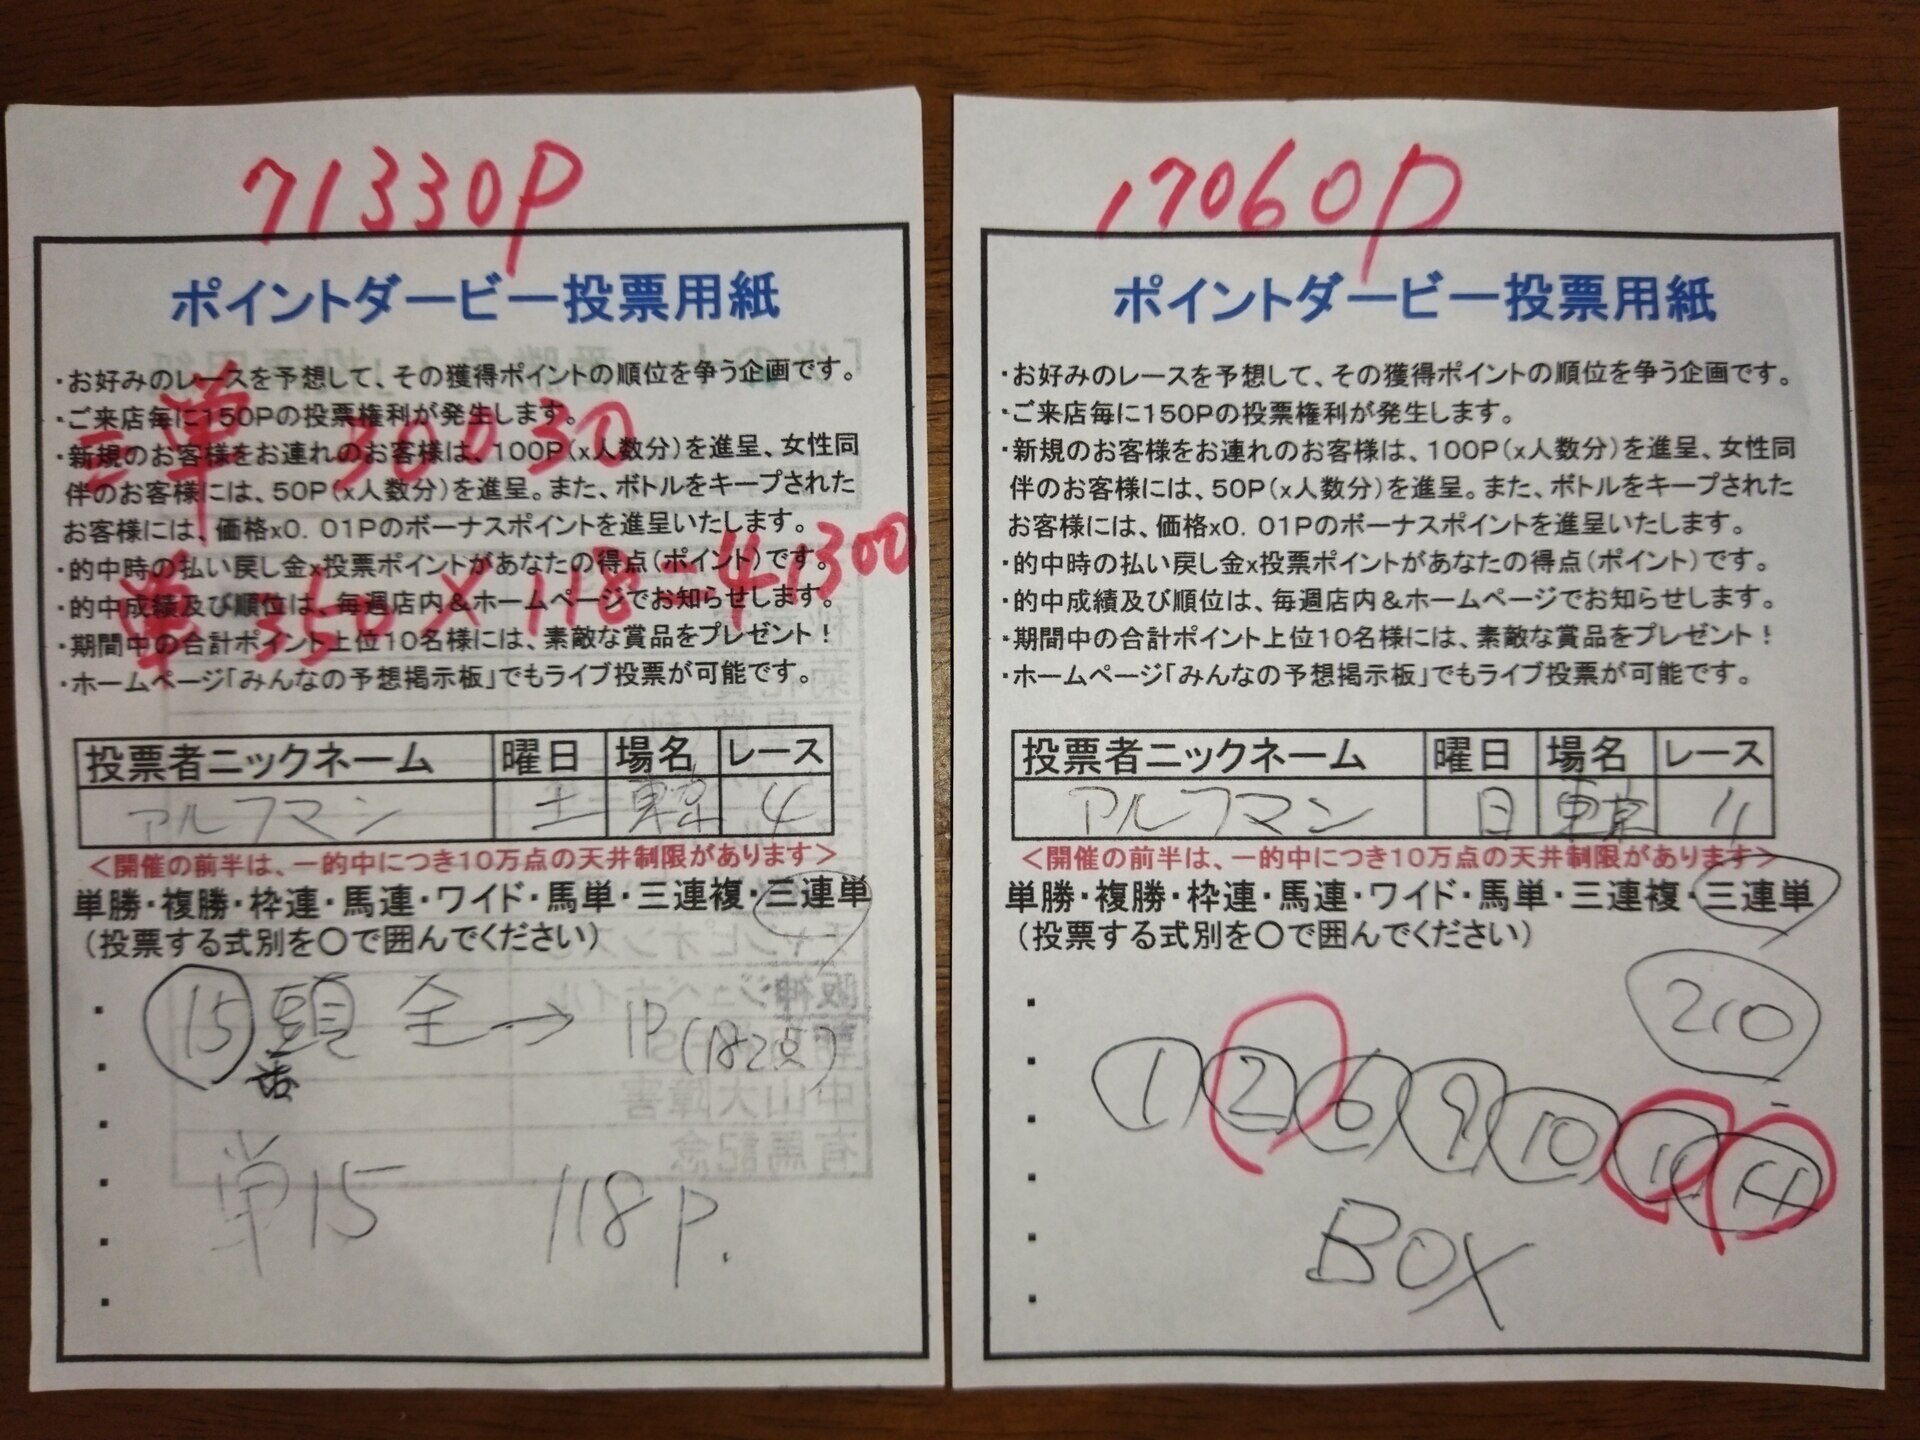 71330P
ポイントダービー投票用紙
・お好みのレースを予想して、その獲得ポイントの順位を争う企画です。
・ご来店毎に150Pの投票権利が発生します。
三単 30030
・新規のお客様をお連れのお客様は、100P(x人数分)を進呈、女性同
伴のお客様には、50P(x人数分)を進呈。また、ボトルをキープされた
お客様には、価格x0.01Pのボーナスポイントを進呈いたします。
・的中時の払い戻し金x投票ポイントがあなたの得点(ポイント)です。
単 350×118=41300
・的中成績及び順位は、毎週店内&ホームページでお知らせします。
・期間中の合計ポイント上位10名様には、素敵な賞品をプレゼント!
・ホームページ「みんなの予想掲示板」でもライブ投票が可能です。
投票者ニックネーム 曜日 場名 レース
アルフマン 土 東京 4
<開催の前半は、一的中につき10万点の天井制限があります>
単勝・複勝・枠連・馬連・ワイド・馬単・三連複・三連単
(投票する式別を○で囲んでください)
⑮頭 全→1P(182点)
単15 118P.
17060P
ポイントダービー投票用紙
・お好みのレースを予想して、その獲得ポイントの順位を争う企画です。
・ご来店毎に150Pの投票権利が発生します。
・新規のお客様をお連れのお客様は、100P(x人数分)を進呈、女性同
伴のお客様には、50P(x人数分)を進呈。また、ボトルをキープされた
お客様には、価格x0.01Pのボーナスポイントを進呈いたします。
・的中時の払い戻し金x投票ポイントがあなたの得点(ポイント)です。
・的中成績及び順位は、毎週店内&ホームページでお知らせします。
・期間中の合計ポイント上位10名様には、素敵な賞品をプレゼント!
・ホームページ「みんなの予想掲示板」でもライブ投票が可能です。
投票者ニックネーム 曜日 場名 レース
アルフマン 日 東京 11
<開催の前半は、一的中につき10万点の天井制限があります>
単勝・複勝・枠連・馬連・ワイド・馬単・三連複・三連単
(投票する式別を○で囲んでください)
210
① ② ⑥ ⑨ ⑩ ⑪ ⑭
BOX